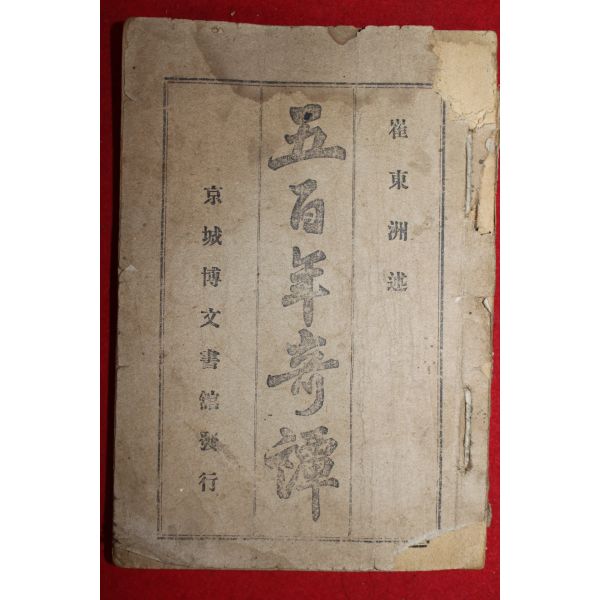 崔東洲述
五百年奇譚
京城博文書館發行